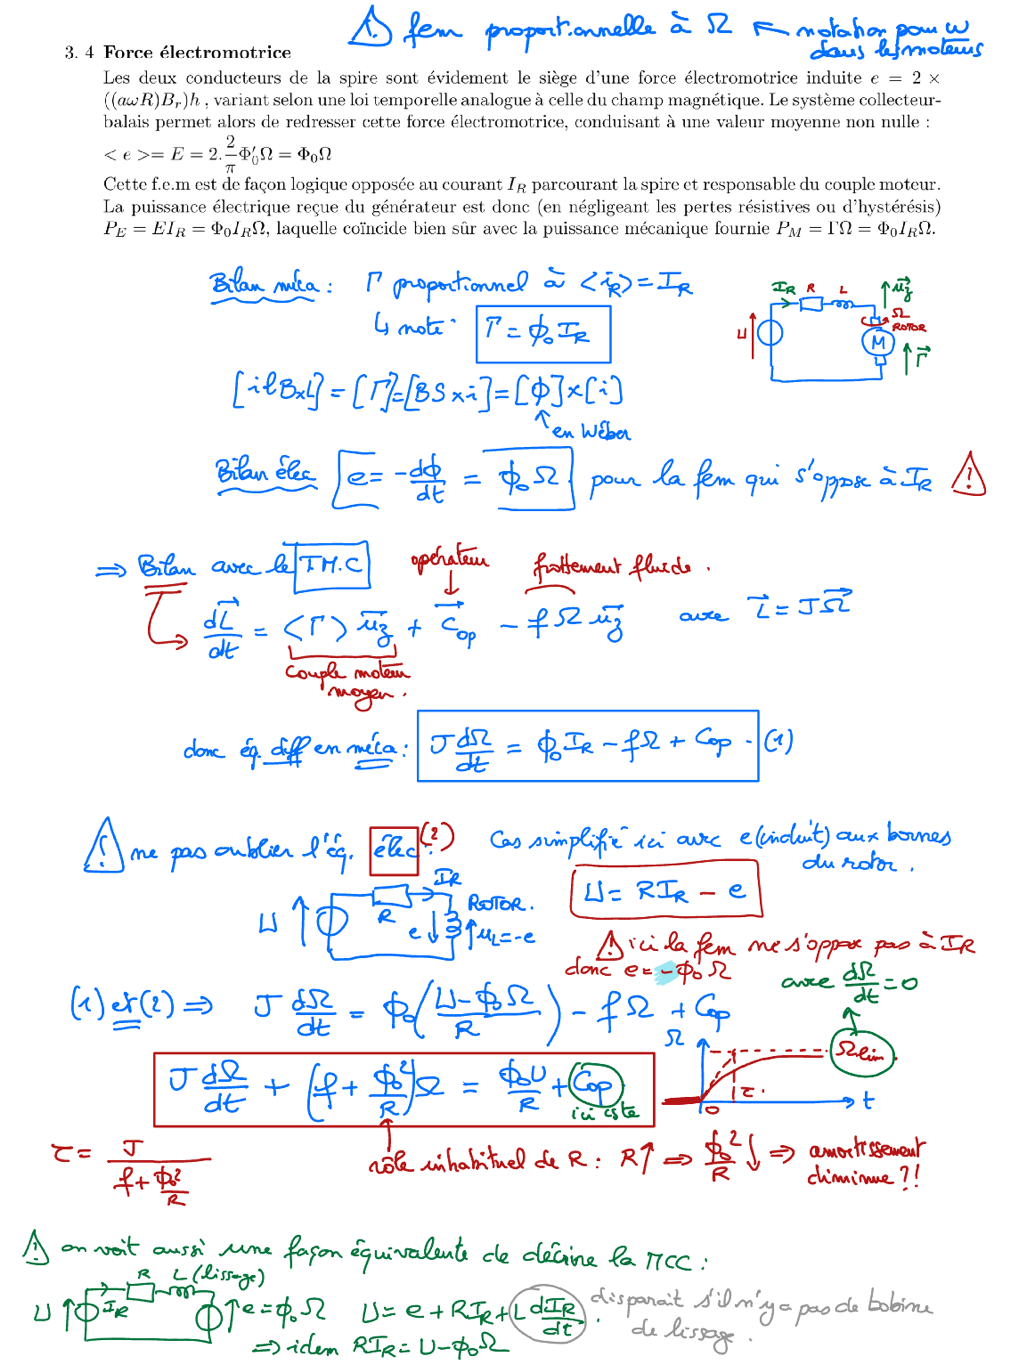 ⚠ fem proportionnelle à Ω ← notation pour ω
dans les moteurs
3. 4 Force électromotrice
Les deux conducteurs de la spire sont évidement le siège d'une force électromotrice induite e = 2 ×
((aωR)B_r)h , variant selon une loi temporelle analogue à celle du champ magnétique. Le système collecteur-
balais permet alors de redresser cette force électromotrice, conduisant à une valeur moyenne non nulle :
< e >= E = 2.2/π Φ'_0Ω = Φ_0Ω
Cette f.e.m est de façon logique opposée au courant I_R parcourant la spire et responsable du couple moteur.
La puissance électrique reçue du générateur est donc (en négligeant les pertes résistives ou d'hystérésis)
P_E = EI_R = Φ_0I_RΩ, laquelle coïncide bien sûr avec la puissance mécanique fournie P_M = ΓΩ = Φ_0I_RΩ.
Bilan méca : Γ proportionnel à <i_R> = I_R
↳ noté : Γ = ϕ_0 I_R
I_R R L u_z
Ω
ROTOR
U M Γ
[ilB×L] = [Γ] = [BS×i] = [ϕ]×[i]
↑ en Wéber
Bilan élec e = -dϕ/dt = ϕ_0 Ω pour la fem qui s'oppose à I_R ⚠
⇒ Bilan avec le T.M.C opérateur frottement fluide.
dL/dt = <Γ> u_z + C_op - f Ω u_z avec L = JΩ
Couple moteur
moyen.
donc éq. diff en méca : J dΩ/dt = ϕ_0 I_R - fΩ + C_op . (1)
⚠ ne pas oublier l'éq. élec (2) : Cas simplifié ici avec e (induit) aux bornes
du rotor.
U R I_R ROTOR. e u_L=-e
U = RI_R - e
⚠ ici la fem ne s'oppose pas à I_R
donc e = -ϕ_0 Ω
avec dΩ/dt = 0
(1) et (2) ⇒ J dΩ/dt = ϕ_0 (U-ϕ_0Ω / R) - fΩ + C_op
Ω Ω lim
J dΩ/dt + (f + ϕ_0²/R)Ω = ϕ_0U/R + C_op
ici cste
0 τ t
τ = J / (f + ϕ_0²/R)
rôle inhabituel de R : R↑ ⇒ ϕ_0²/R ↓ ⇒ amortissement
diminue ?!
⚠ on voit aussi une façon équivalente de décrire la MCC :
R L (lissage)
U I_R e = ϕ_0 Ω U = e + RI_R + L dI_R/dt . disparait s'il n'y a pas de bobine
de lissage.
⇒ idem RI_R = U - ϕ_0Ω